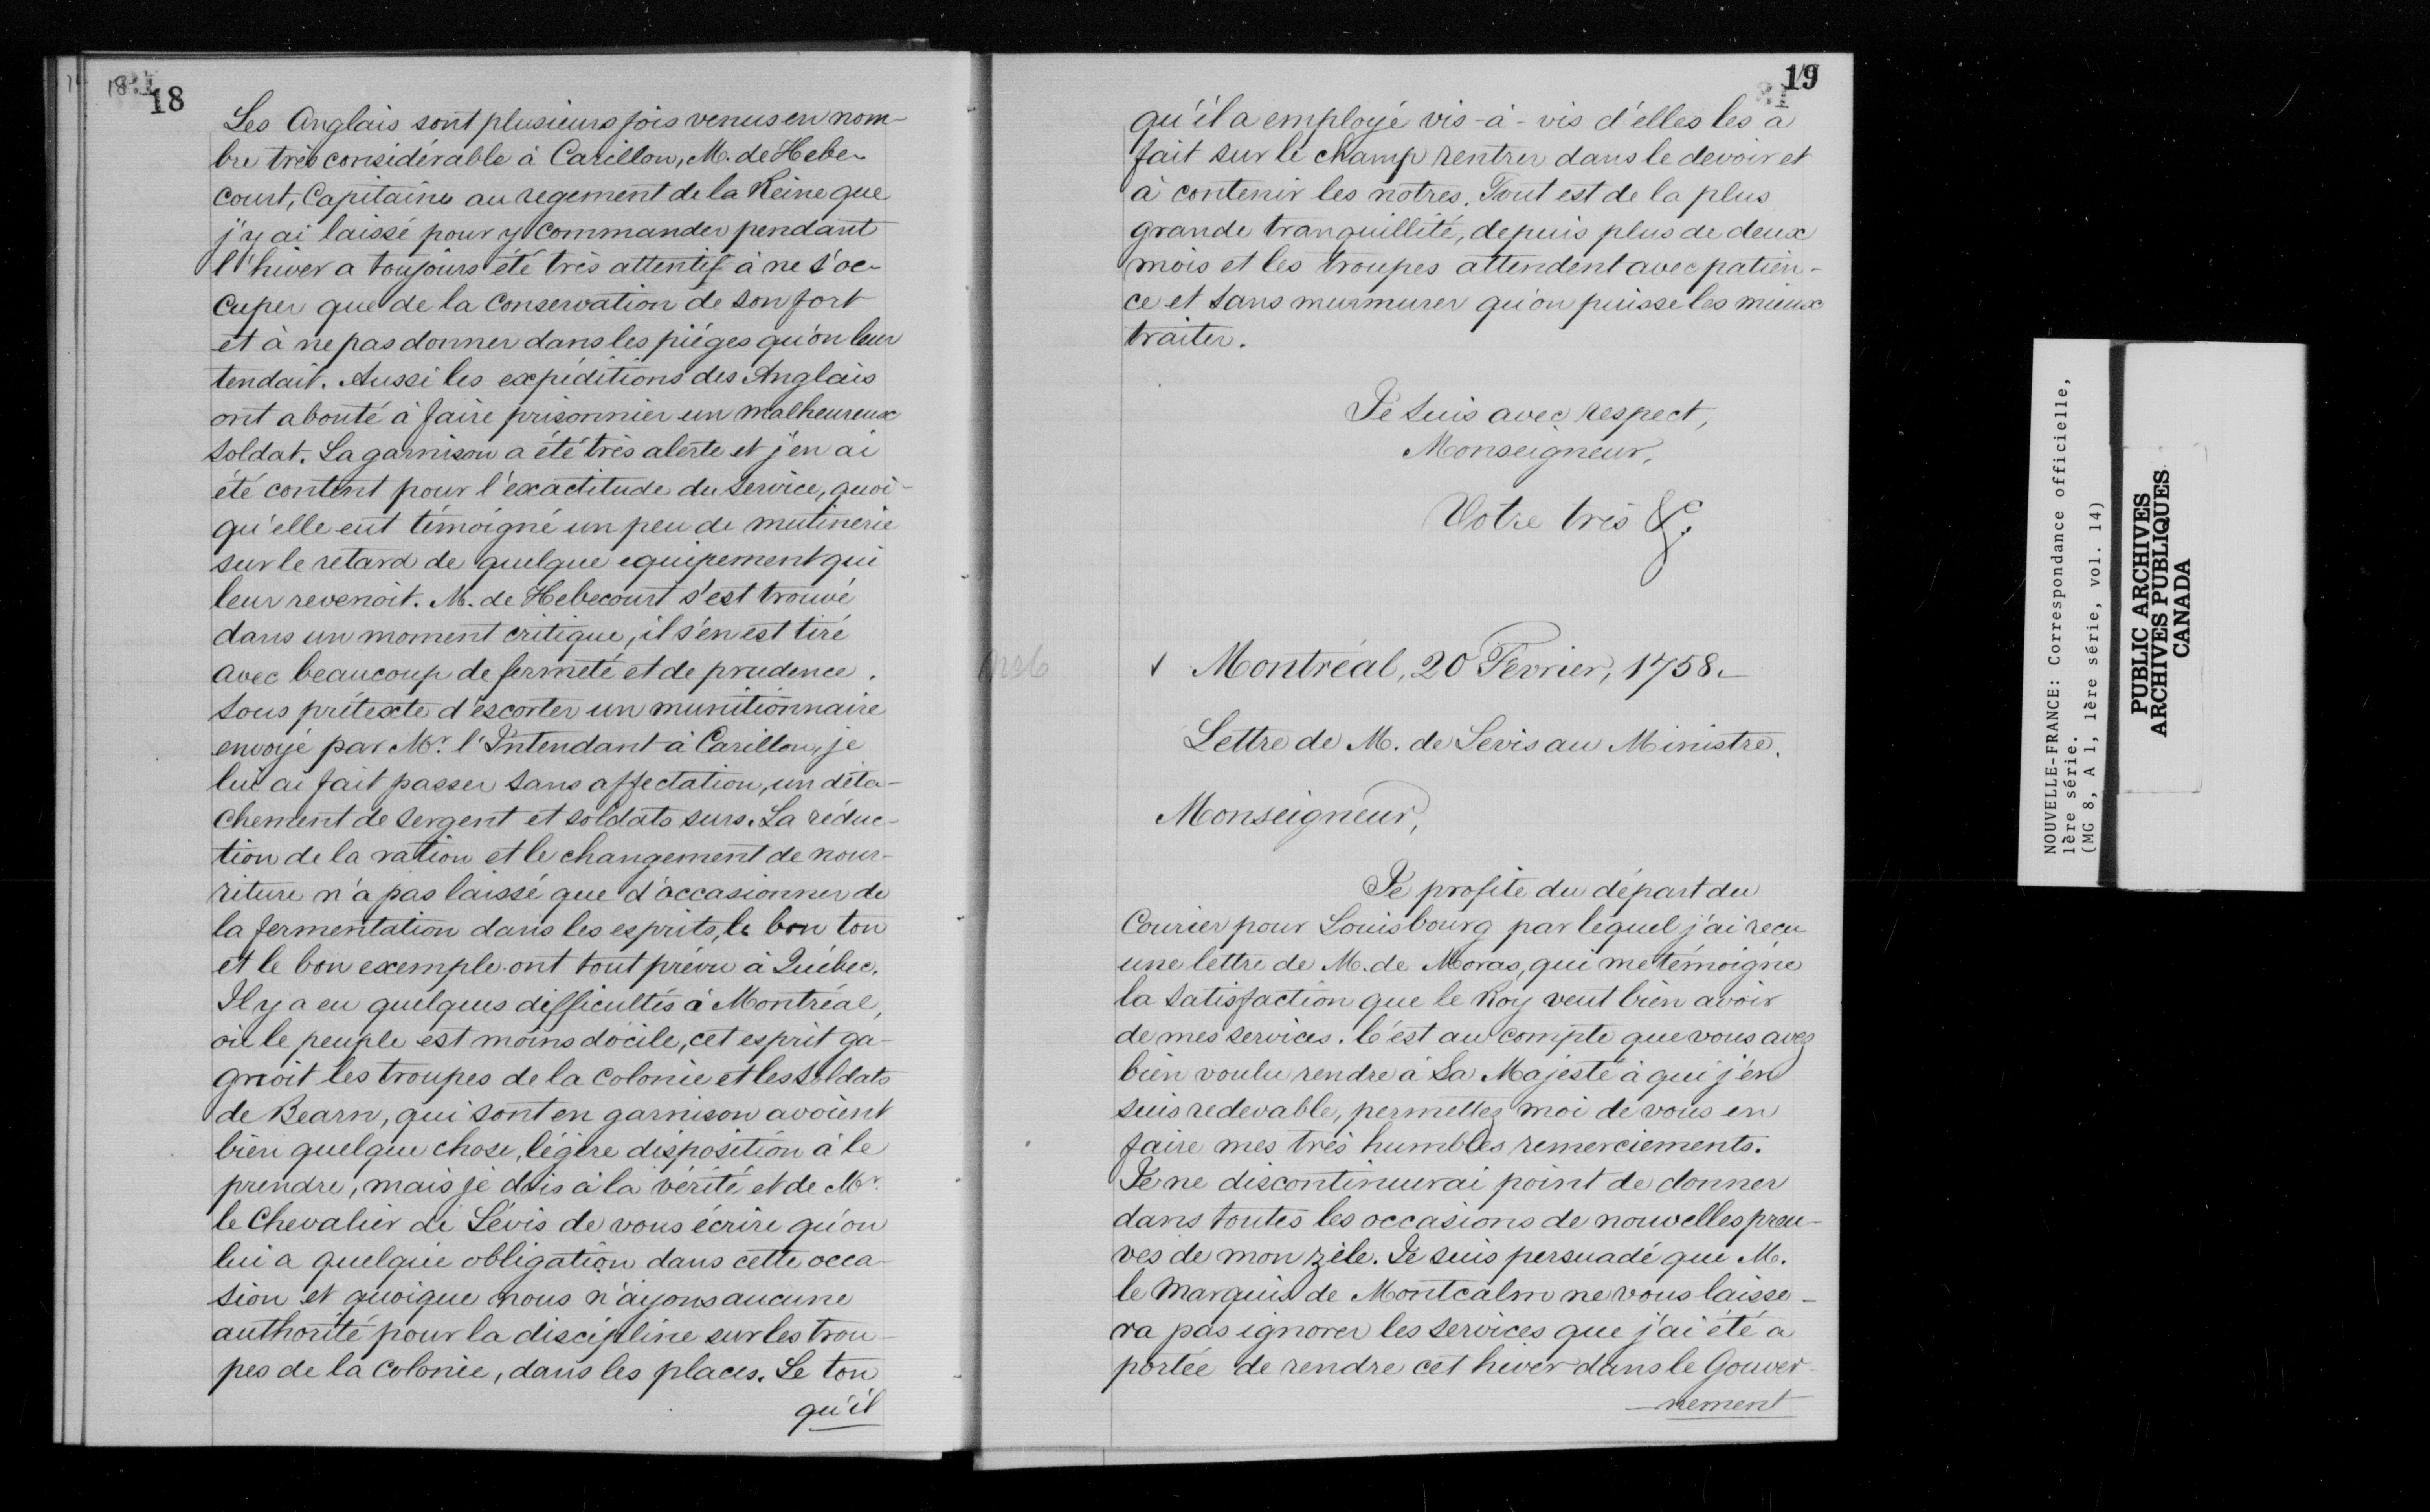 18
Les Anglais sont plusieurs fois venus en nom-
bre très considérable à Carillon, M. de Hebe-
court, Capitaine au regement de la Reine que
j'y ai laissé pour y commander pendant
l'hiver a toujours été très attentif à ne s'oc-
cuper que de la conservation de son fort
et à ne pas donner dans les piéges qu'on leur
tendait. Aussi les expéditions des Anglais
ont abouté à faire prisonnier un malheureux
soldat. La garnison a été très alerte et j'en ai
été content pour l'exactitude du service, quoi-
qu'elle eut témoigné un peu de mutinerie
sur le retard de quelque equipement qui
leur revenoit. M. de Hebecourt s'est trouvé
dans un moment critique, il s'en est tiré
avec beaucoup de fermeté et de prudence.
sous prétexte d'escorter un munitionnaire
envoyé par Mr. l'Intendant à Carillon, je
lui ai fait passer sans affectation, un déta-
chement de sergent et soldats surs. La réduc-
tion de la ration et le changement de nour-
riture n'a pas laissé que d'occasionner de
la fermentation dans les esprits, le bon ton
et le bon exemple ont tout prévu à Québec.
Il y a eu quelques difficultés à Montréal,
où le peuple est moins docile, cet esprit ga-
gnoit les troupes de la colonie et les soldats
de Bearn, qui sont en garnison avoient
bien quelque chose, légère disposition à le
prendre, mais je dois à la vérité et de Mr.
le Chevalier de Lévis de vous écrire qu'on
lui a quelque obligation dans cette occa-
sion et quoique nous n'ayons aucune
authorité pour la discipline sur les trou-
pes de la colonie, dans les places. Le ton
qu'il
19
qu'il a employé vis-à-vis d'elles les a
fait sur le champ rentrer dans le devoir et
à contenir les notres. Tout est de la plus
grande tranquillité, depuis plus de deux
mois et les troupes attendent avec patien-
ce et sans murmurer qu'on puisse les mieux
traiter.
Je suis avec respect,
Monseigneur,
Votre très &c.
Montréal, 20 Fevrier, 1758.
Lettre de M. de Levis au Ministre.
Monseigneur,
Je profite du départ du
Courier pour Louisbourg par lequel j'ai recu
une lettre de M. de Moras, qui me témoigne
la satisfaction que le Roy veut bien avoir
de mes services. C'est au compte que vous avez
bien voulu rendre à Sa Majesté à qui j'en
suis redevable, permettez moi de vous en
faire mes très humbles remerciements.
Je ne discontinuerai point de donner
dans toutes les occasions de nouvelles preu-
ves de mon zèle. Je suis persuadé que M.
le Marquis de Montcalm ne vous laisse-
ra pas ignorer les services que j'ai été a
portée de rendre cet hiver dans le Gouver-
nement
NOUVELLE-FRANCE: Correspondance officielle,
1ère série.
(MG 8, A 1, 1ère série, vol. 14)
PUBLIC ARCHIVES
ARCHIVES PUBLIQUES
CANADA